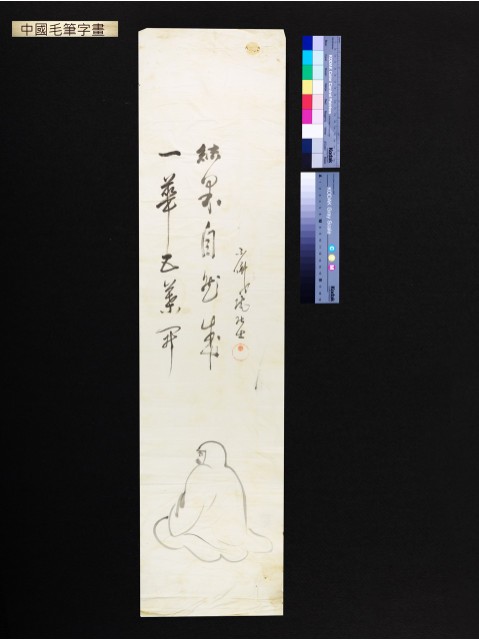 中國毛筆字畫
一華五葉開
結果自然成
KODAK Color Control Patches
Kodak
KODAK Gray Scale
C
Y
M
Kodak